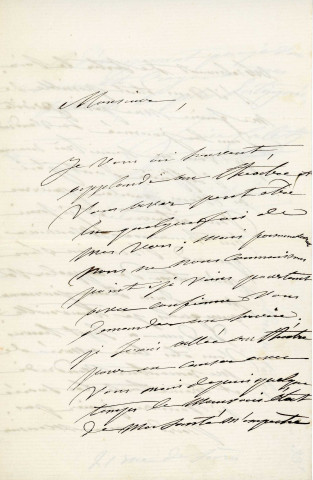 Monsieur,
Je vous ai souvent,
applaudi au théâtre et
Vous avez peut être
lu quelquefois de
mes vers; mais personnellement
nous ne nous connaissons
point et je viens pourtant
avec confiance vous
demander un service.
je serais allée au théâtre
pour en causer avec
Vous mais depuis quelque
temps le mauvais état
de ma santé m'empêche